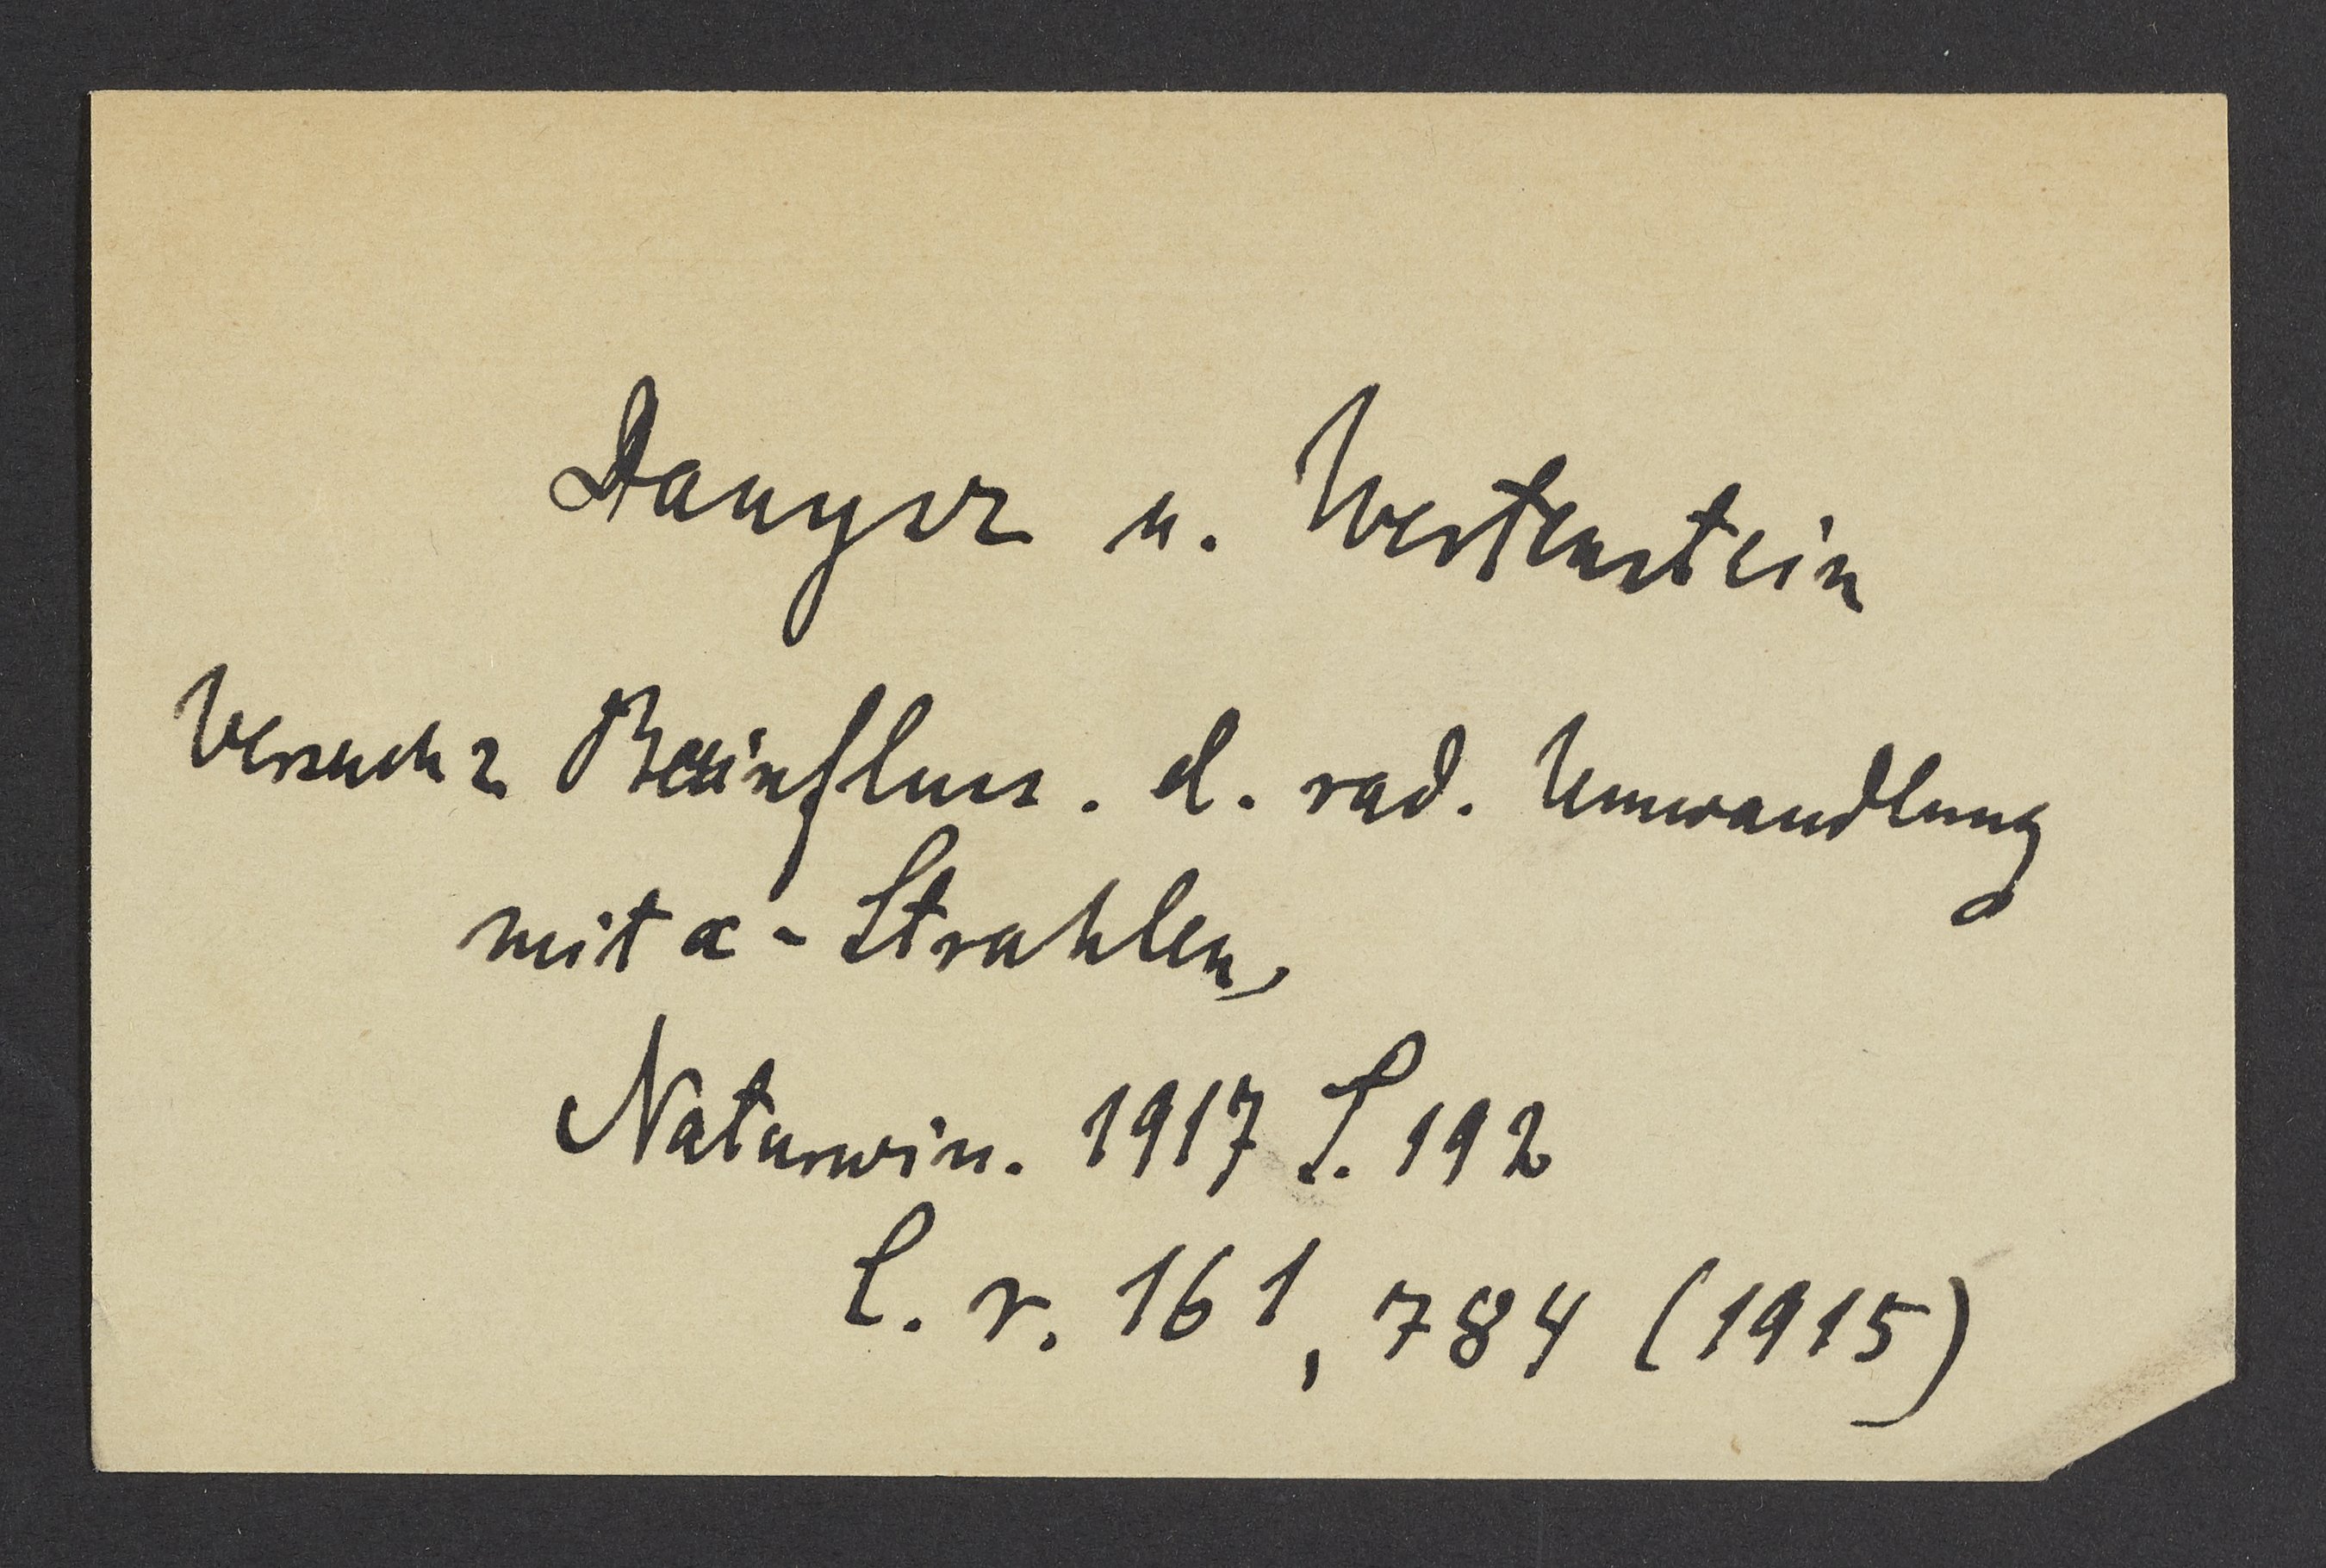 Danysz u. Wertenstein
Versuch z Beeinfluss. d. rad. Umwandlung
mit α-Strahlen,
Naturwiss. 1917 S. 192
C. r. 161, 784 (1915)